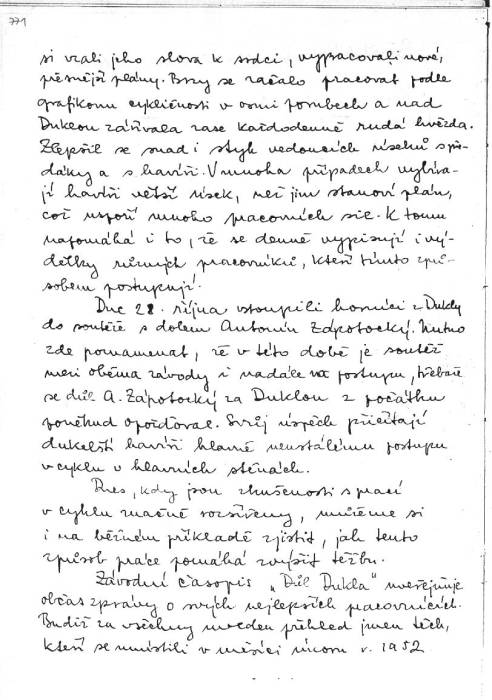 771
si vzali jeho slova k srdci, vypracovali nové,
přesnější plány. Brzy se začalo pracovat podle
grafikonu cykličnosti v osmi porubech a nad
Duklou zářivala zase každodenně rudá hvězda.
Zlepšil se snad i styk vedoucích úseků s pře-
dáky a s havíři. V mnoha případech vybíra-
jí havíři větší úsek, než jim stanoví plán,
což uspoří mnoho pracovních sil. K tomu
napomáhá i to, že se denně vypisují i vý-
dělky různých pracovníků, kteří tímto způ-
sobem postupují.
Dne 28. října vstoupili horníci z Dukly
do soutěže s dolem Antonín Zápotocký. Nutno
zde poznamenat, že v této době je soutěž
mezi oběma závody i nadále na postupu, třebaže
se důl A. Zápotocký za Duklou z počátku
poněkud opožďoval. Svůj úspěch přičítají
dukelští havíři hlavně neustálému postupu
v cyklu v hlavních stěnách.
Dnes, kdy jsou zkušenosti s prací
v cyklu značně rozšířeny, můžeme si
i na běžném příkladě zjistit, jak tento
způsob práce pomáhá zvýšit těžbu.
Závodní časopis "Důl Dukla" uveřejňuje
občas zprávy o svých nejlepších pracovnících.
Budiž za všechny uveden přehled jmen těch,
kteří se umístili v měsíci únoru r. 1952